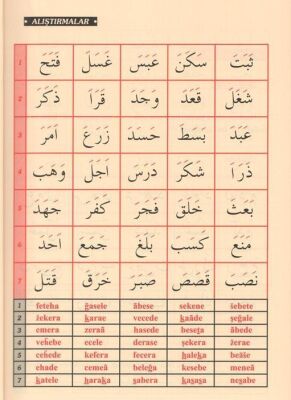 ALIŞTIRMALAR
1 فَتَحَ غَسَلَ عَبَسَ سَكَنَ ثَبَتَ
2 ذَكَرَ قَرَاَ وَجَدَ قَعَدَ شَغَلَ
3 اَمَرَ زَرَعَ حَسَدَ بَسَطَ عَبَدَ
4 وَهَبَ اَجَلَ دَرَسَ شَكَرَ ذَرَاَ
5 جَهَدَ كَفَرَ فَجَرَ خَلَقَ بَعَثَ
6 اَحَدَ جَمَعَ بَلَغَ كَسَبَ مَنَعَ
7 قَتَلَ خَرَقَ صَبَرَ قَصَصَ نَصَبَ
1 feteha ğasele âbese sekene šebete
2 žekera karae vecede kaâde şeğale
3 emera zeraâ hasede beseta âbede
4 vehebe ecele derase şekera žerae
5 cehede kefera fecera haleka beâše
6 ehade cemeâ beleğa kesebe meneâ
7 katele haraka sabera kasasa nesabe